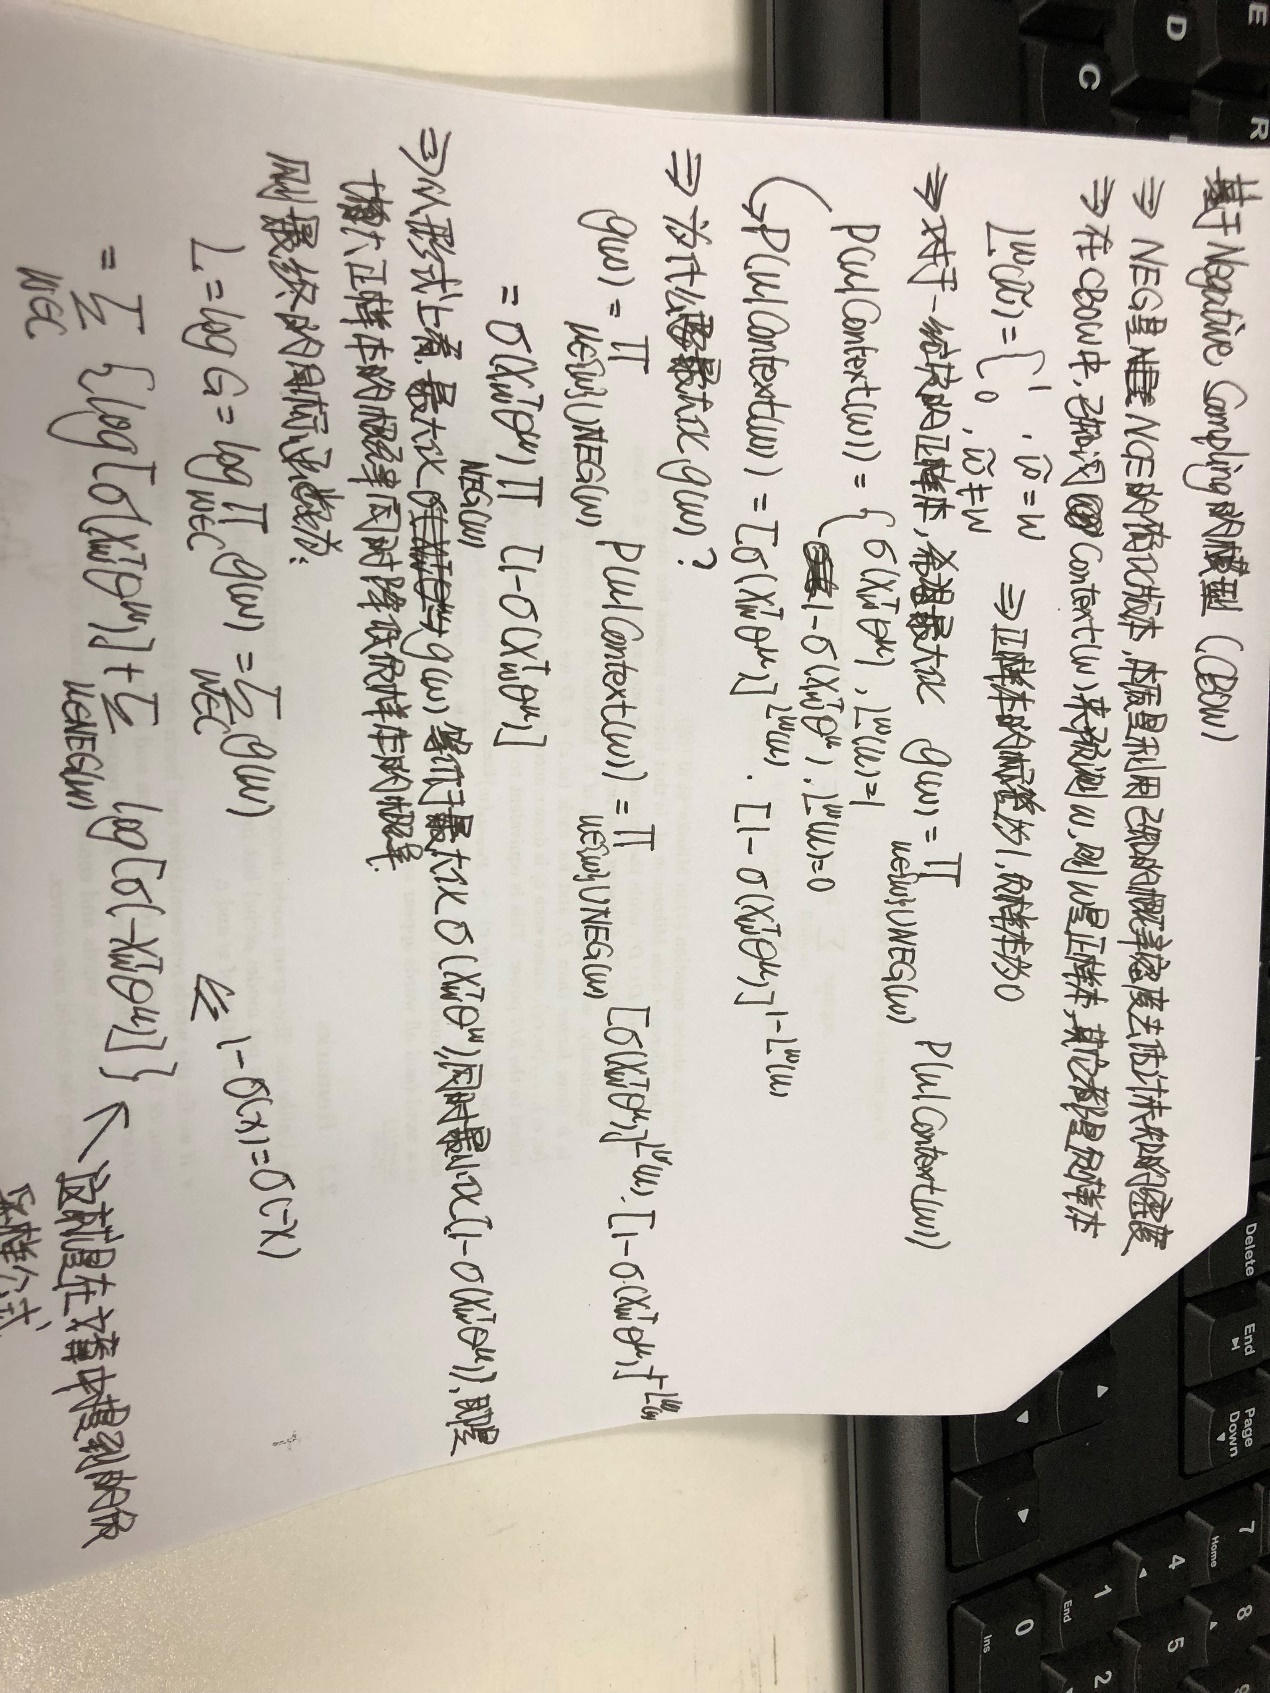 基于Negative Sampling的模型 (CBOW)
⇒ NEG是NCE的简化版本,本质是利用已知的概率密度去估计未知的密度
⇒ 在CBOW中,已知词Context(w)来预测w,则w是正样本,其它都是负样本
L^w(w̃) = { 1, w̃=w
0, w̃≠w ⇒正样本的标签为1,负样本为0
⇒对于一给定的正样本,希望最大化 g(w) = ∏_{u∈{w}∪NEG(w)} p(u|Context(w))
p(u|Context(w)) = { σ(X_w^Tθ^u), L^w(u)=1
1-σ(X_w^Tθ^u), L^w(u)=0
↳P(u|Context(w)) = [σ(X_w^Tθ^u)]^{L^w(u)} · [1-σ(X_w^Tθ^u)]^{1-L^w(u)}
⇒ 为什么要最大化g(w)?
g(w) = ∏_{u∈{w}∪NEG(w)} p(u|Context(w)) = ∏_{u∈{w}∪NEG(w)} [σ(X_w^Tθ^u)]^{L^w(u)} · [1-σ(X_w^Tθ^u)]^{1-L^w(u)}
= σ(X_w^Tθ^w) ∏_{NEG(w)} [1-σ(X_w^Tθ^u)]
⇒从形式上看,最大化g(w)等价于最大化σ(X_w^Tθ^w),同时最小化[1-σ(X_w^Tθ^u)],即是
增大正样本的概率同时降低负样本的概率.
则最终的目标函数为:
L = log G = log ∏_{w∈C} g(w) = Σ_{w∈C} g(w)
1-σ(x)=σ(-x)
= Σ_{w∈C} {log[σ(X_w^Tθ^w)] + Σ_{u∈NEG(w)} log[σ(-X_w^Tθ^u)]} ← 这就是在文章中提到的负
采样公式
Delete
End
Page Down
7 Home
4
1 End
0 Ins
8
5
2
E
R
D
C